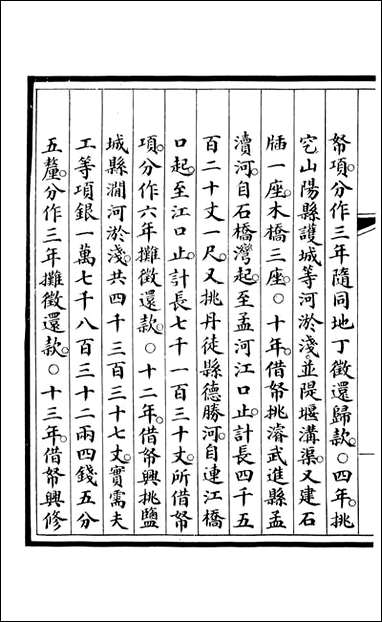 帑項。分作三年隨同地丁徵還歸款。○四年。挑
穵山陽縣護城等河淤淺並隄堰溝渠。又建石
牐一座。木橋三座。○十年。借帑挑濬武進縣孟
瀆河。自石橋灣起。至孟河江口止。計長四千五
百二十丈一尺。又挑丹徒縣德勝河。自連江橋
口起。至江口止。計長七千一百三十丈。所借帑
項。分作六年攤徵還款。○十二年。借帑興挑鹽
城縣澗河淤淺。共四千三百三十七丈。實需夫
工等項銀一萬七千八百三十二兩四錢五分
五釐。分作三年攤徵還款。○十三年。借帑興修